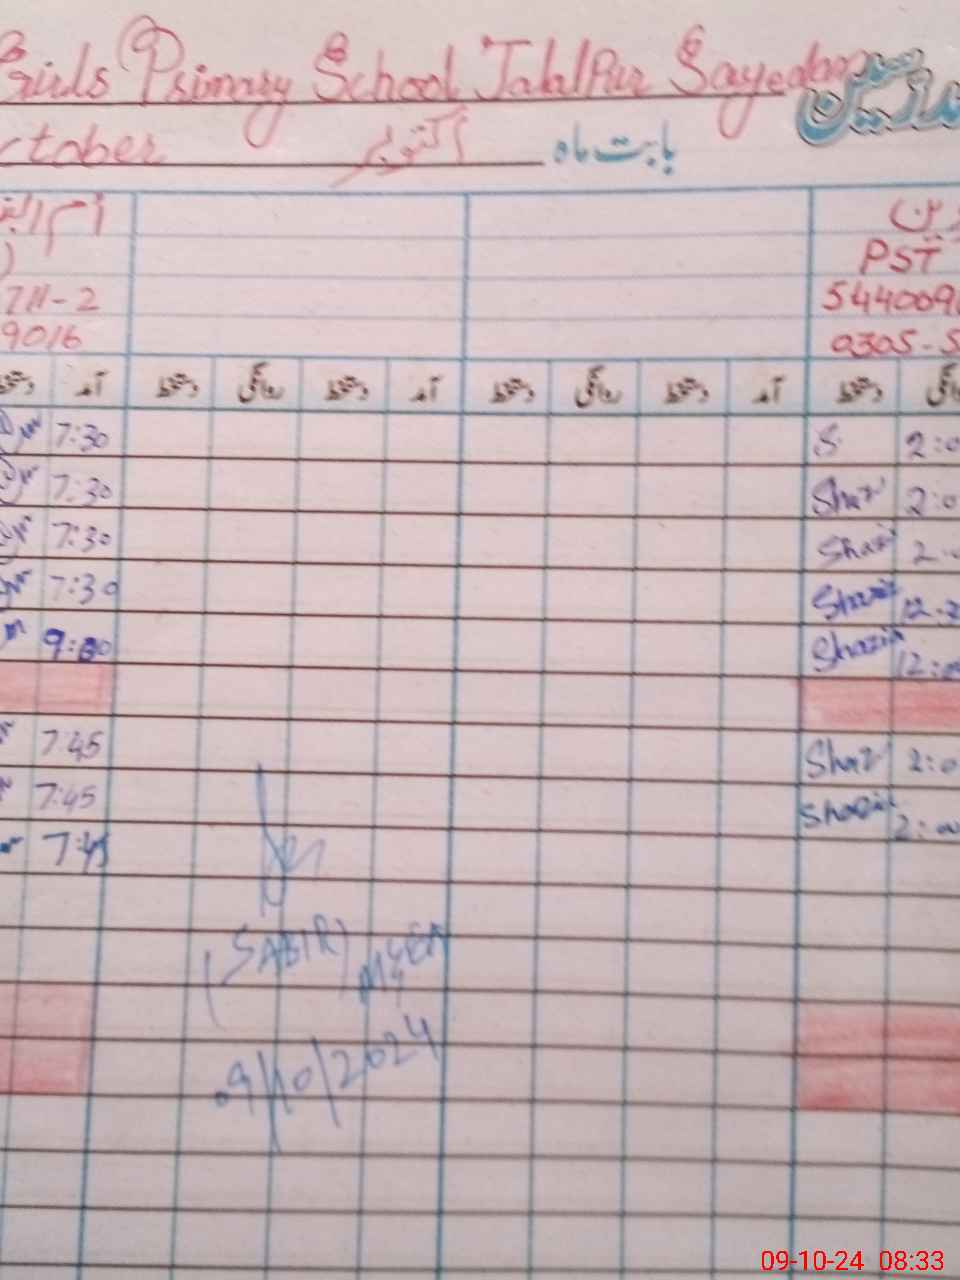 Girls Primary School JalalPur Sayedan
October اکتوبر بابت ماہ
PST
711-2 544009
9016 0305-5
آمد دستخط روانگی دستخط آمد دستخط روانگی دستخط آمد دستخط
7:30 S 2:0
7:30 Shaz 2:0
7:30 Shazi 2:
7:30 Shazia 12:3
9:00 Shazia 12:00
7:45 Shaz 2:0
7:45 Shazia 2:00
7:45
(SABIR)
09/10/2024
09-10-24 08:33